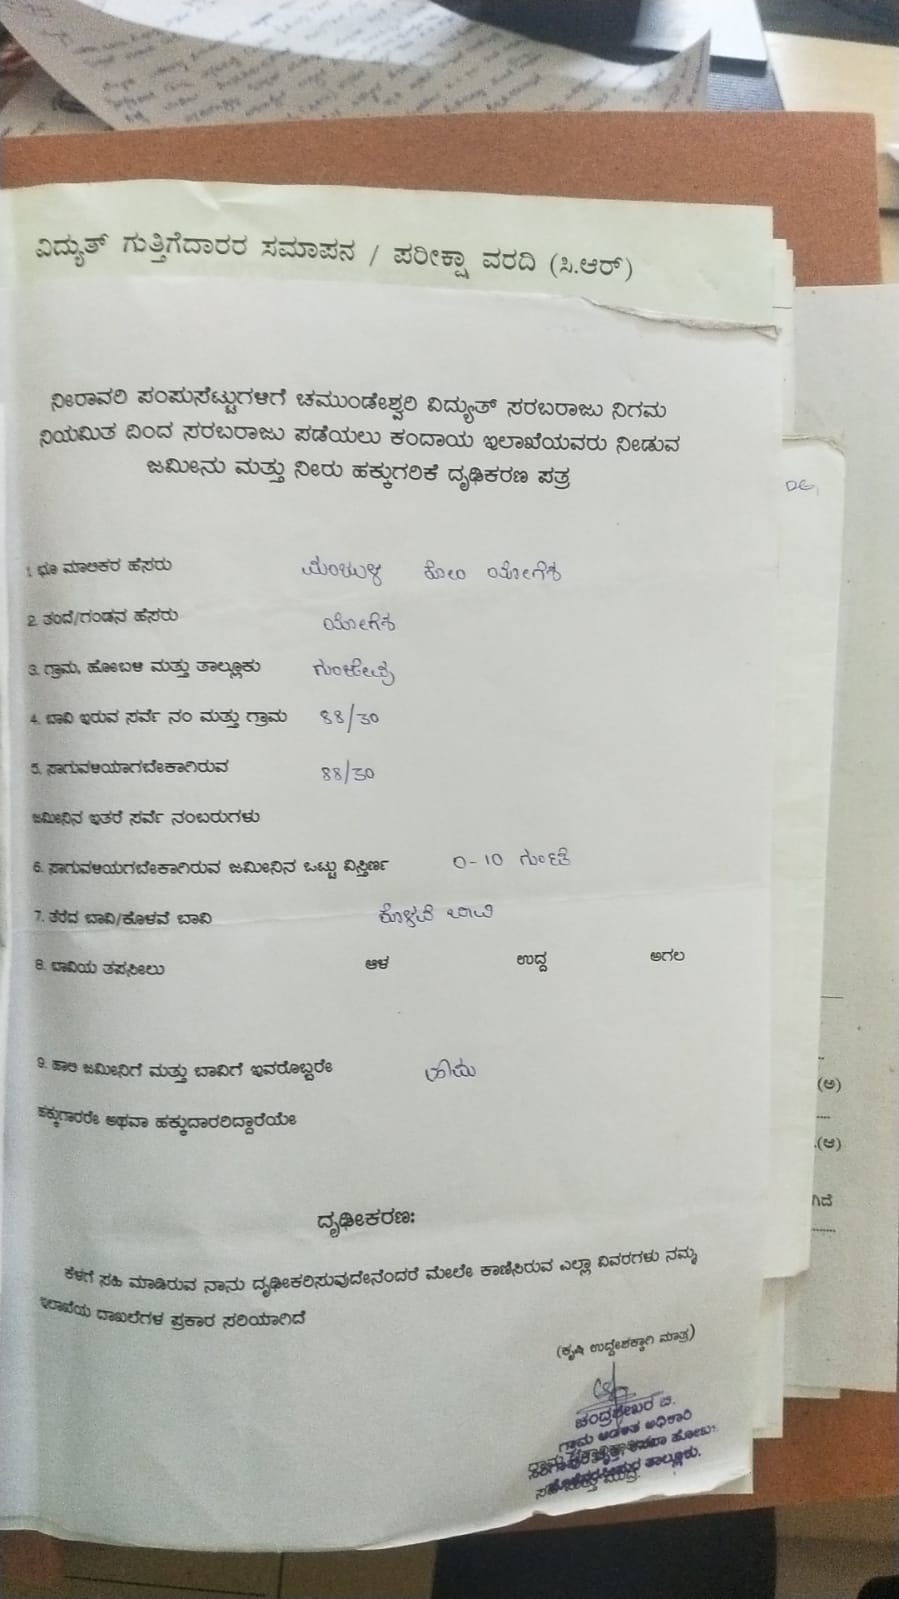 ವಿದ್ಯುತ್ ಗುತ್ತಿಗೆದಾರರ ಸಮಾಪನ / ಪರೀಕ್ಷಾ ವರದಿ (ಸಿ.ಆರ್)
ನೀರಾವರಿ ಪಂಪುಸೆಟ್ಟುಗಳಿಗೆ ಚಮುಂಡೇಶ್ವರಿ ವಿದ್ಯುತ್ ಸರಬರಾಜು ನಿಗಮ
ನಿಯಮಿತ ದಿಂದ ಸರಬರಾಜು ಪಡೆಯಲು ಕಂದಾಯ ಇಲಾಖೆಯವರು ನೀಡುವ
ಜಮೀನು ಮತ್ತು ನೀರು ಹಕ್ಕುಗರಿಕೆ ದೃಢಿಕರಣ ಪತ್ರ
1. ಭೂ ಮಾಲಿಕರ ಹೆಸರು ಮಂಜುಳ ಕೋಂ ಯೋಗೇಶ
2. ತಂದೆ/ಗಂಡನ ಹೆಸರು ಯೋಗೇಶ
3. ಗ್ರಾಮ, ಹೋಬಳಿ ಮತ್ತು ತಾಲ್ಲೂಕು
4. ಬಾವಿ ಇರುವ ಸರ್ವೆ ನಂ ಮತ್ತು ಗ್ರಾಮ 88/30
5. ಸಾಗುವಳಿಯಾಗಬೇಕಾಗಿರುವ 88/30
ಜಮೀನಿನ ಇತರೆ ಸರ್ವೆ ನಂಬರುಗಳು
6. ಸಾಗುವಳಿಯಗಬೇಕಾಗಿರುವ ಜಮೀನಿನ ಒಟ್ಟು ವಿಸ್ತೀರ್ಣ 0-10 ಗುಂಟೆ
7. ತೆರೆದ ಬಾವಿ/ಕೊಳವೆ ಬಾವಿ ಕೊಳವೆ ಬಾವಿ
8. ಬಾವಿಯ ತಪಸೀಲು ಆಳ ಉದ್ದ ಅಗಲ
9. ಹಾಲಿ ಜಮೀನಿಗೆ ಮತ್ತು ಬಾವಿಗೆ ಇವರೊಬ್ಬರೇ
ಹಕ್ಕುಗಾರರೇ ಅಥವಾ ಹಕ್ಕುದಾರರಿದ್ದಾರೆಯೇ
ದೃಢೀಕರಣ:
ಕೆಳಗೆ ಸಹಿ ಮಾಡಿರುವ ನಾನು ದೃಢೀಕರಿಸುವುದೇನೆಂದರೆ ಮೇಲೇ ಕಾಣಿಸಿರುವ ಎಲ್ಲಾ ವಿವರಗಳು ನಮ್ಮ
ಇಲಾಖೆಯ ದಾಖಲೆಗಳ ಪ್ರಕಾರ ಸರಿಯಾಗಿದೆ
(ಕೃಷಿ ಉದ್ದೇಶಕ್ಕಾಗಿ ಮಾತ್ರ)
ಚಂದ್ರಶೇಖರ ಬಿ.
ಗ್ರಾಮ ಆಡಳಿತ ಅಧಿಕಾರಿ
ತಾಲ್ಲೂಕು.
(ಅ)
(ಆ)